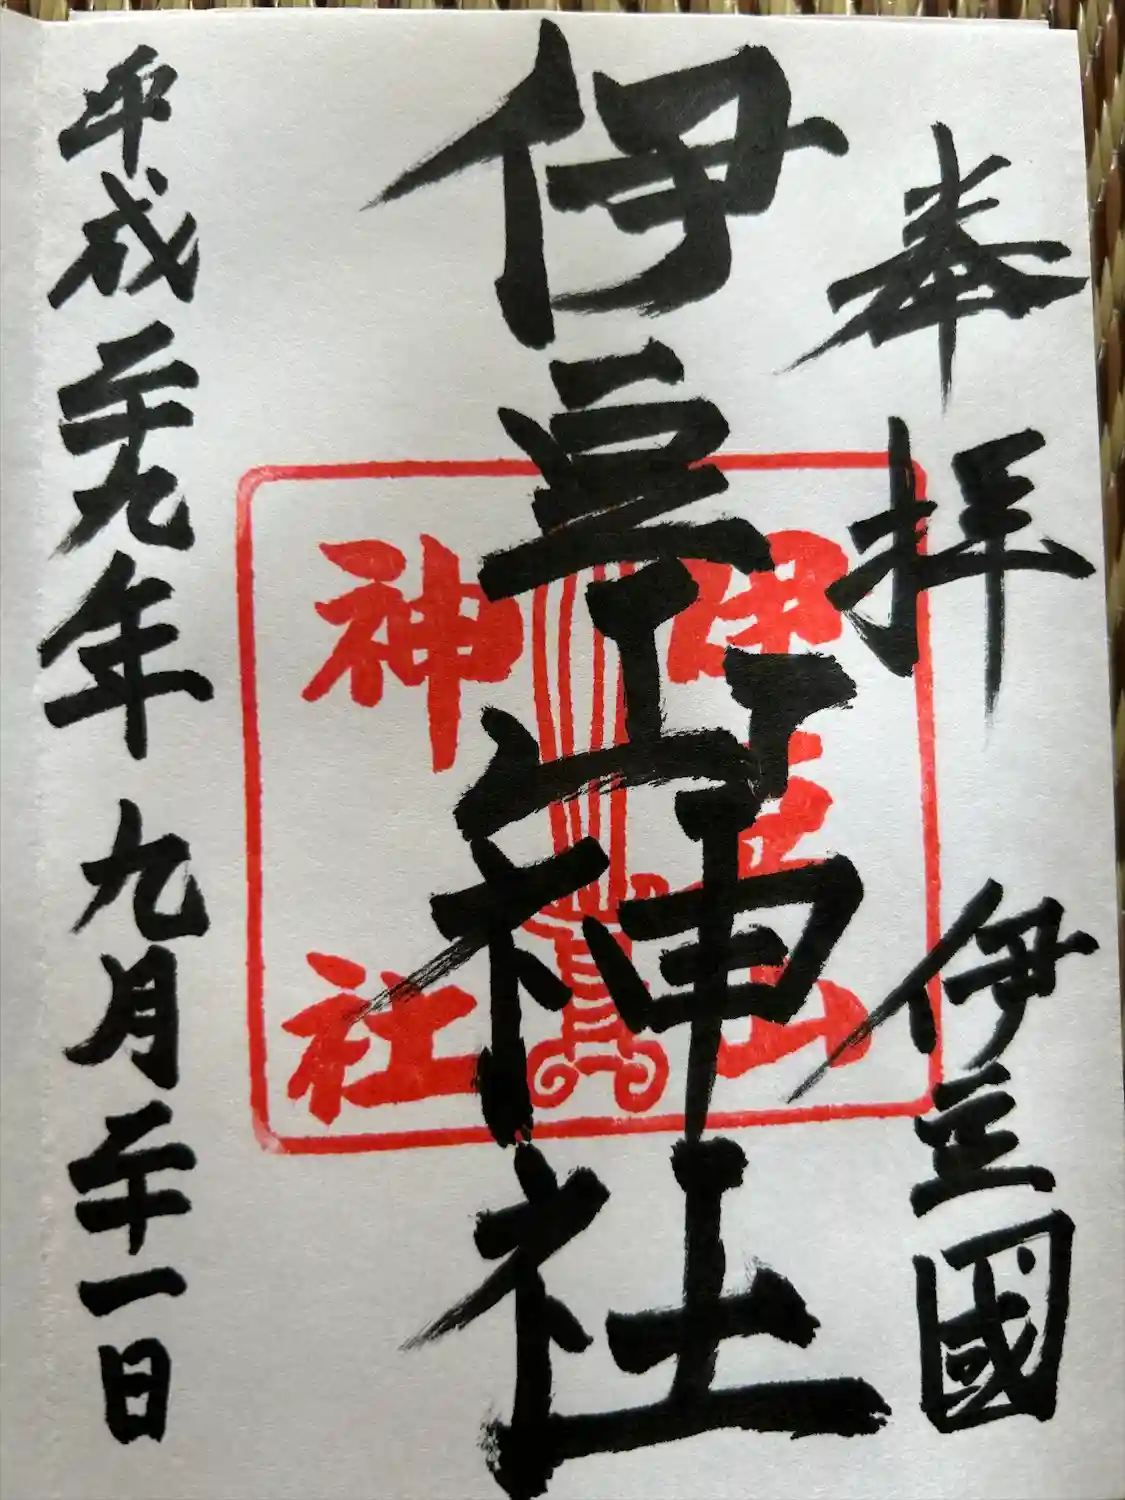 奉拝　伊豆國
伊豆山神社
伊豆山
神社
平成二十九年九月二十一日